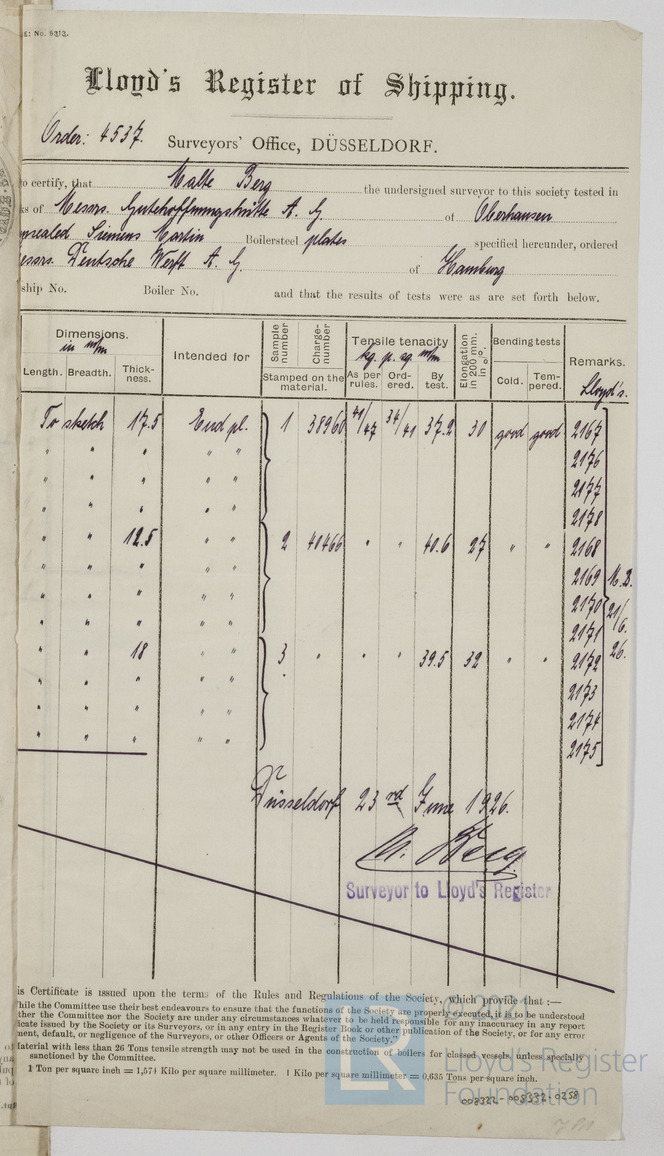 E: No. 9313.
Lloyd's Register of Shipping.
Order: 4537.
Surveyors' Office, DÜSSELDORF.
to certify, that Malte Berg the undersigned surveyor to this society tested in
ks of Messrs. Gutehoffnungshütte A. G. of Oberhausen
nnealed Siemens Martin Boilersteel plates specified hereunder, ordered
essrs. Deutsche Werft A. G. of Hamburg
ship No. Boiler No. and that the results of tests were as are set forth below.
Dimensions. in m/m
Length. Breadth. Thick-ness.
Intended for
Sample number Charge-number
Stamped on the material.
Tensile tenacity kg. p. sq. m/m
As per rules. Ord-ered. By test.
Elongation in 200 mm. in %.
Bending tests
Cold. Tem-pered.
Remarks.
Lloyd's.
To sketch 17.5 End pl. 1 38960 41/47 34/41 37.2 30 good good 2167
" " " " " 2176
" " " " " 2177
" " " " " 2178
" " 12.5 " " 2 40466 " " 40.6 27 " " 2168
" " " " " 2169
" " " " " 2170
" " " " " 2171
" " 18 " " 3 " " " 39.5 32 " " 2172
" " " " " 2173
" " " " " 2174
" " " " " 2175
M. B.
21/6.
26.
Düsseldorf 23rd June 1926.
M. Berg
Surveyor to Lloyd's Register
is Certificate is issued upon the terms of the Rules and Regulations of the Society, which provide that :—
While the Committee use their best endeavours to ensure that the functions of the Society are properly executed, it is to be understood
ther the Committee nor the Society are under any circumstances whatever to be held responsible for any inaccuracy in any report
icate issued by the Society or its Surveyors, or in any entry in the Register Book or other publication of the Society, or for any error
ment, default, or negligence of the Surveyors, or other Officers or Agents of the Society."
aterial with less than 26 Tons tensile strength may not be used in the construction of boilers for classed vessels, unless specially
sanctioned by the Committee.
1 Ton per square inch = 1,574 Kilo per square millimetre. 1 Kilo per square millimetre = 0,635 Tons per square inch.
© 2021
LR
Lloyd's Register
Foundation
008332-008332-0258